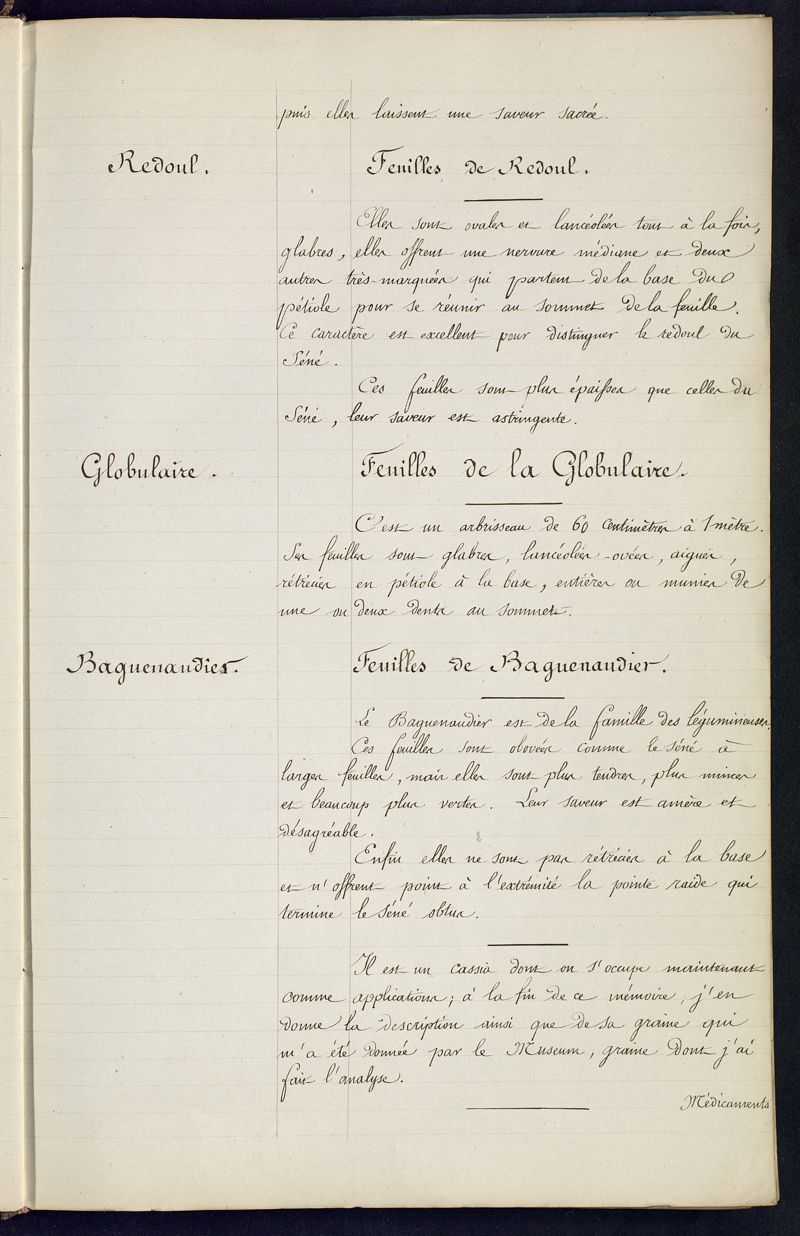 puis elles laissent une saveur sacrée.
Redoul.
Feuilles de Redoul.
Elles sont ovales et lancéolées tout à la fois,
glabres, elles offrent une nervure médiane et deux
autres très-marquées qui partent de la base du
pétiole pour se réunir au sommet de la feuille.
Ce caractère est excellent pour distinguer le redoul du
Séné.
Ces feuilles sont plus épaisses que celles du
Séné, leur saveur est astringente.
Globulaire.
Feuilles de la Globulaire.
C'est un arbrisseau de 60 centimètres à 1 mètre.
Ses feuilles sont glabres, lancéolées-ovées, aigues,
rétrécies en pétiole à la base, entières ou munies de
une ou deux dents au sommet.
Baguenaudier.
Feuilles de Baguenaudier.
Le Baguenaudier est de la famille des légumineuses.
Ces feuilles sont obovées comme le séné à
larges feuilles, mais elles sont plus tendres, plus minces
et beaucoup plus vertes. Leur saveur est amère et
désagréable.
Enfin elles ne sont pas rétrécies à la base
et n'offrent point à l'extrémité la pointe raide qui
termine le séné obtus.
Il est un cassia dont on s'occupe maintenant
comme applications; à la fin de ce mémoire, j'en
donne la description ainsi que de sa graine qui
m'a été donnée par le Museum, graine dont j'ai
fait l'analyse.
Médicaments